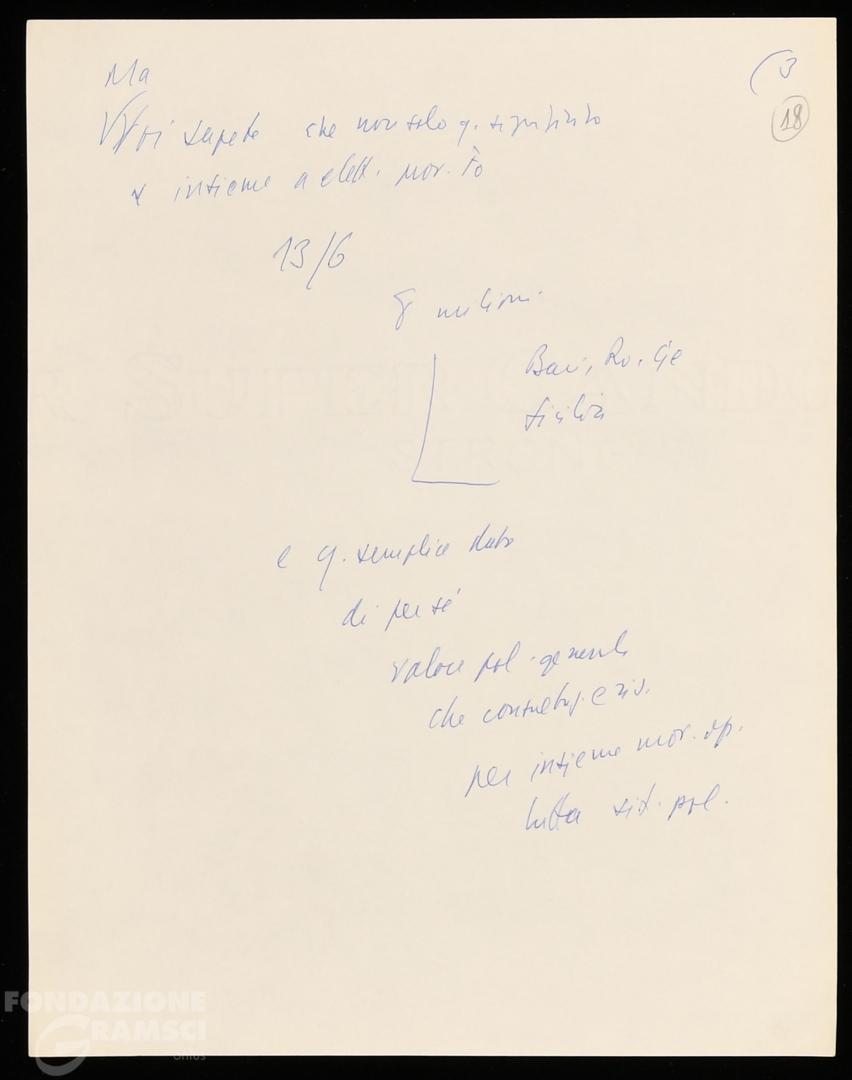 Ma
(3
18
Voi sapete che non solo q. significato
x insieme a elett.
13/6
8 milioni.
Bari, Ro.
Sicilia
e q. semplice dato
di per sé
valore pol. generale
che
per insieme mov. op.
tutta sit. pol.
FONDAZIONE
GRAMSCI
onlus